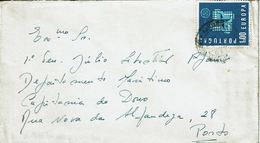 Exmo Sr.
1º Ten. Júlio
Departamento Marítimo
Capitania do Douro
Rua Nova da Alfandega, 28
Porto
1$00 EUROPA
PORTUGAL